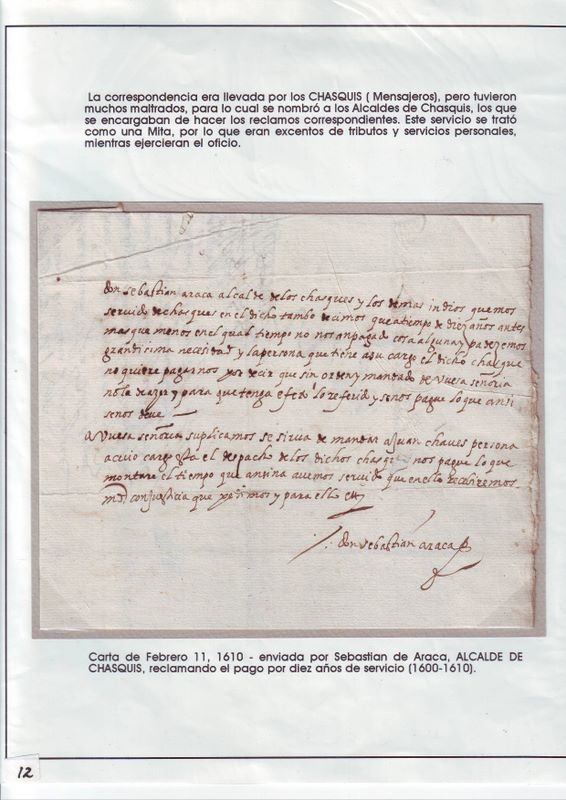 La correspondencia era llevada por los CHASQUIS ( Mensajeros), pero tuvieron
muchos maltrados, para lo cual se nombró a los Alcaldes de Chasquis, los que
se encargaban de hacer los reclamos correspondientes. Este servicio se trató
como una Mita, por lo que eran excentos de tributos y servicios personales,
mientras ejercieran el oficio.
don sebastian araca alcalde de los chasques y los demas indios que emos
servido de chasques en el dicho tambo decimos que a tiempo de diez años antes
mas que menos en el qual tiempo no nos an pagado cosa alguna y padezemos
grandisima necesidad y la persona que tiene a su cargo el dicho chasque
no quiere pagarnos por decir que sin orden y mandado de vuesa señoria
no la de azer y para que tenga efeto lo referido y se nos pague lo que ansi
se nos deve
a Vuesa señoria suplicamos se sirva de mandar a Juan chaves persona
a cuio cargo esta el despacho de los dichos chasques nos pague lo que
montare el tiempo que ansina avemos servido que en ello reciviremos
md con justicia que pedimos y para ello etc
don sebastian araca
Carta de Febrero 11, 1610 - enviada por Sebastian de Araca, ALCALDE DE
CHASQUIS, reclamando el pago por diez años de servicio (1600-1610).
12